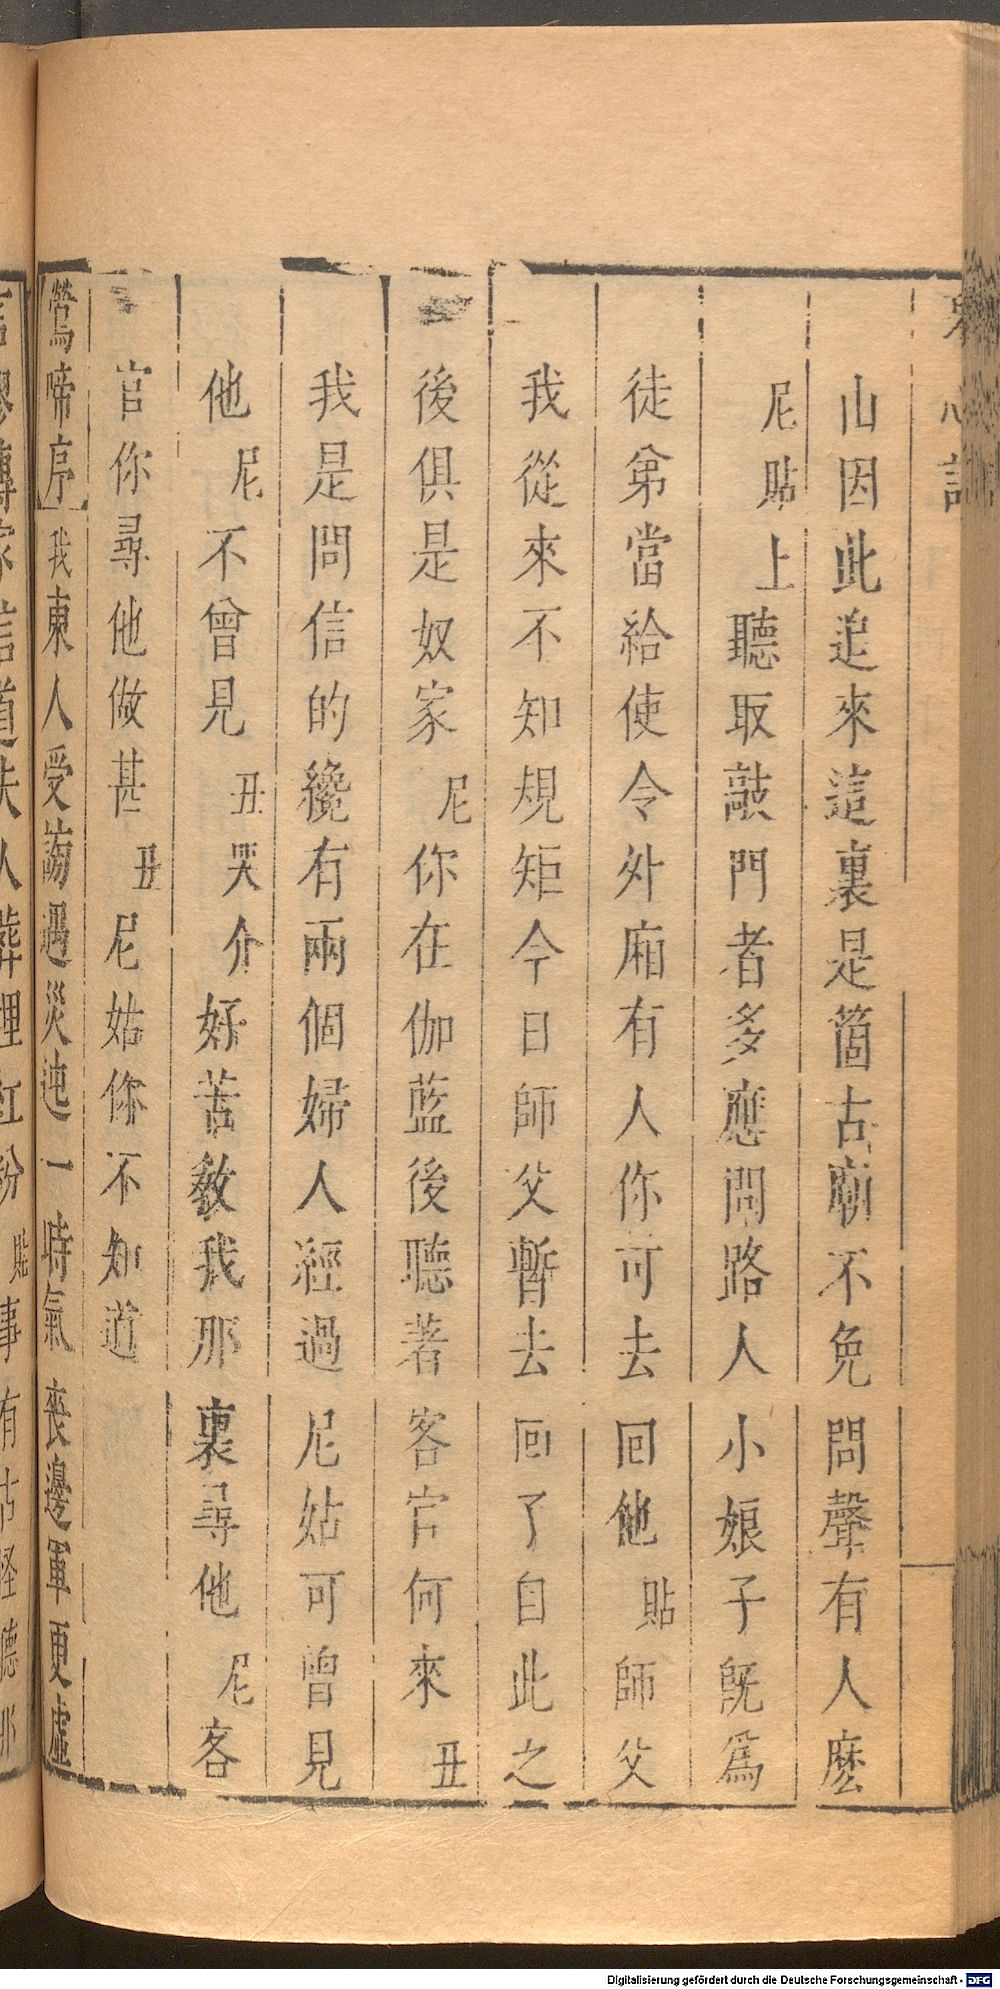 山因此追來這裏是箇古廟不免問聲有人麽
尼貼上聽取敲門者多應問路人小娘子旣爲
徒弟當給使令外廂有人你可去回他貼師父
我從來不知規矩今日師父暫去回了自此之
後俱是奴家尼你在伽藍後聽著客官何來丑
我是問信的纔有兩個婦人經過尼姑可曾見
他尼不曾見丑哭介好苦教我那裏尋他尼客
官你尋他做甚丑尼姑你不知道
鶯啼序我東人受謫遇災迍一時氣喪邊軍更虛
言謬傳家信道夫人葬埋紅粉貼事有古怪德那
Digitalisierung gefördert durch die Deutsche Forschungsgemeinschaft - DFG